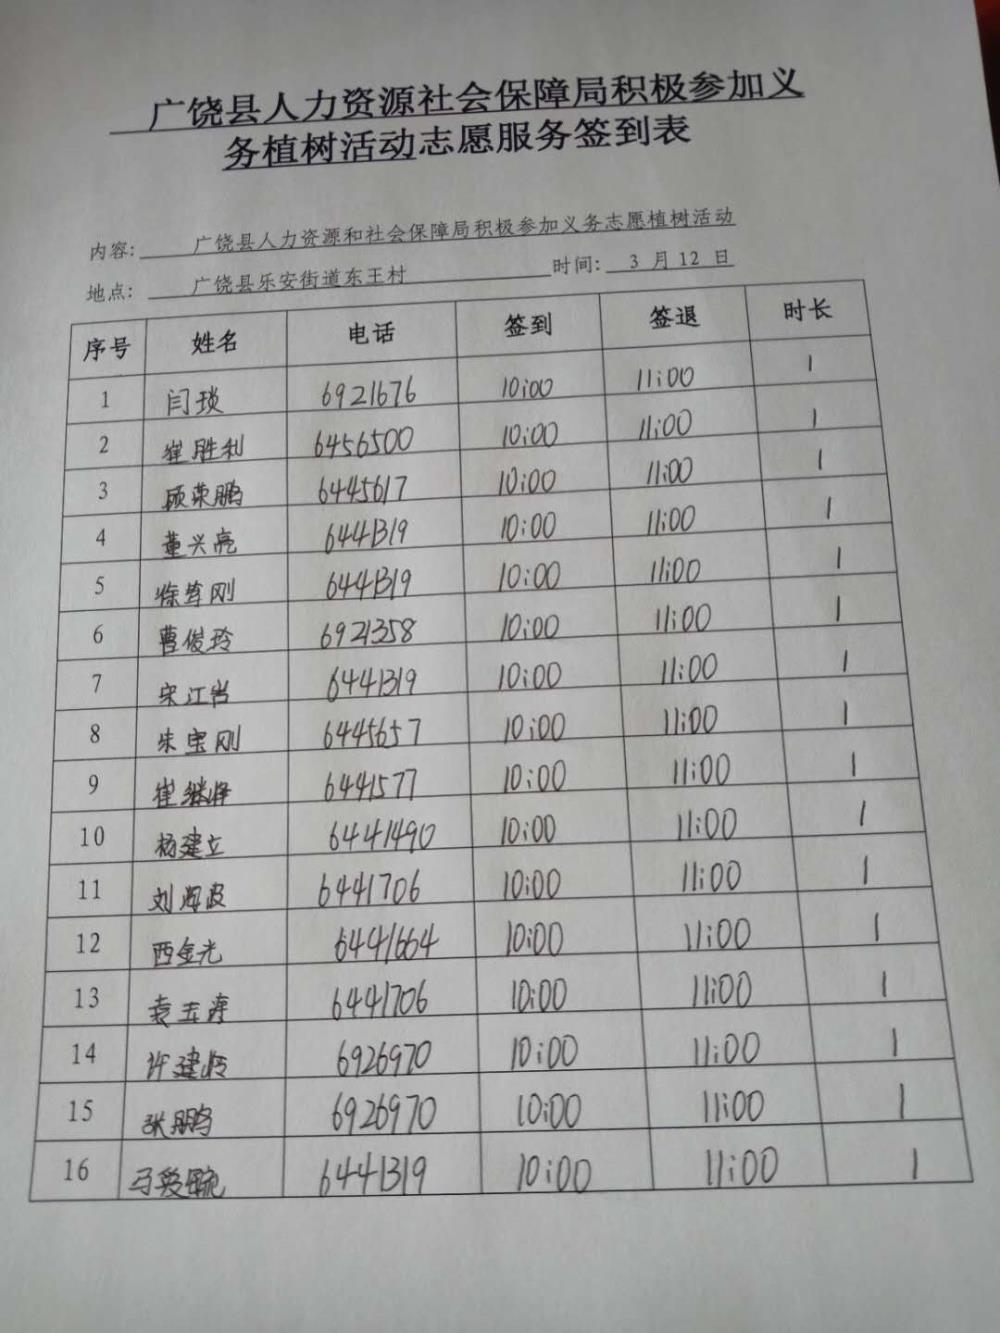 广饶县人力资源社会保障局积极参加义
务植树活动志愿服务签到表
内容: 广饶县人力资源和社会保障局积极参加义务志愿植树活动
地点: 广饶县乐安街道东王村 时间: 3 月 12 日
序号 姓名 电话 签到 签退 时长
1 闫琰 6921676 10:00 11:00 1
2 崔胜利 6456500 10:00 11:00 1
3 顾荣鹏 6445617 10:00 11:00 1
4 董兴亮 6441319 10:00 11:00 1
5 徐 刚 6441319 10:00 11:00 1
6 曹俊玲 6921358 10:00 11:00 1
7 宋江 6441319 10:00 11:00 1
8 朱宝刚 6445657 10:00 11:00 1
9 崔继 6441577 10:00 11:00 1
10 杨建立 6441490 10:00 11:00 1
11 刘海波 6441706 10:00 11:00 1
12 西金光 6441664 10:00 11:00 1
13 袁玉涛 6441706 10:00 11:00 1
14 许建 6926970 10:00 11:00 1
15 张鹏 6926970 10:00 11:00 1
16 马爱 6441319 10:00 11:00 1